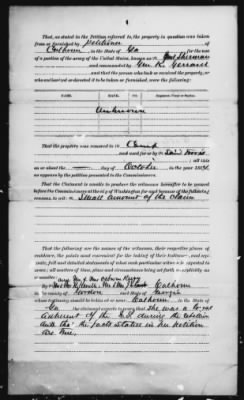 That, as stated in the Petition referred to, the property in question was taken
from or furnished by Petitioner of
Calhoun in the State of Ga for the use
of a portion of the army of the United States, known as Genl Sherman
and commanded by Gen. K. Gerrard
and that the person who took or received the property, or
who authorized or directed it to be taken or furnished, were the following:
NAME. RANK. Regiment, Corps or Station.
Unknown
That the property was removed to Camp
and used for or by said Forces
; all this
on or about the day of October in the year 1864
as appears by the petition presented to the Commissioners.
That the Claimant is unable to produce the witnesses hereinafter to be named
before the Commissioners at the city of Washington for and because of the following
reasons, to wit: Small amount of the claim
That the following are the names of the witnesses, their respective places of
residence, the points and convenient for the taking of their testimony, and sepa-
rately, full and detailed statements of what each particular witness is expected to
prove, all matters of time, place and circumstance being set forth as explicitly as
Calhoun
in county of Gordon and State of Georgia
whose testimony should be taken at or near Calhoun in the State of
Ga the claimant expects to prove that she was a loyal
adherent of the U.S. during the rebellion
and the facts stated in her petition
are true.